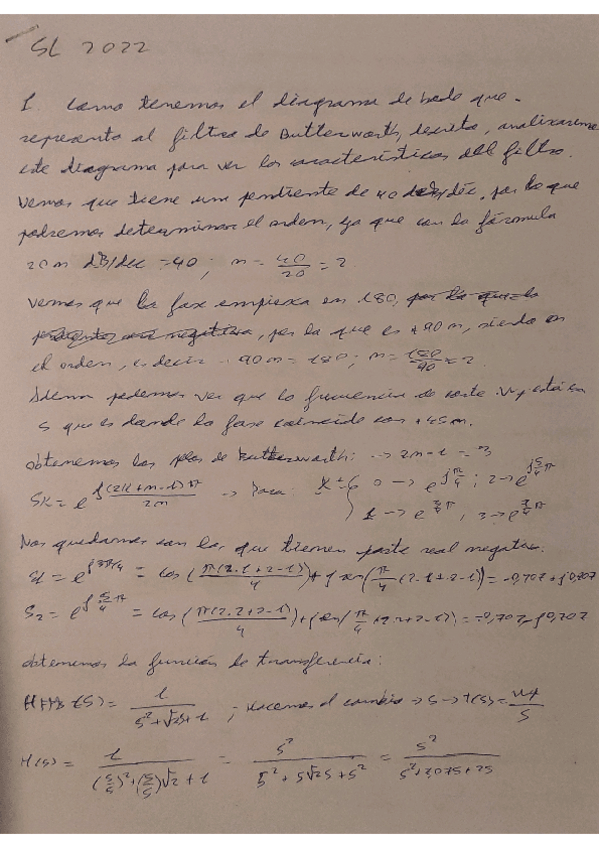 SL 2022
1. Como tenemos el diagrama de bode que
representa al filtro de Butterworth, descrito, analizaremos
este diagrama para ver las características del filtro.
Vemos que tiene una pendiente de 40 dB/déc, por lo que
podremos determinar el orden, ya que con la fórmula
20m dB/dec = 40; m = 40/20 = 2
Vemos que la fase empieza en 180, por lo que es +90m, siendo m
el orden, es decir 90m = 180; m = 180/90 = 2
podemos ver que la frecuencia de corte Wp está en
5 que es donde la fase coincide con +45m.
obtenemos los polos de Butterworth: -> 2m-1 = 3
SK = e^{j(2K+m-1)π/2m} -> Para: K = 0 -> e^{jπ/4}; 2 -> e^{j5/4π}
1 -> e^{3/4π}; 3 -> e^{7/4π}
Nos quedamos con los que tienen parte real negativa.
S1 = e^{j3π/4} = cos(π(2·1+2-1)/4) + j sen(π/4(2·1+2-1)) = -0,707+j0,707
S2 = e^{j5/4π} = cos(π(2·2+2-1)/4) + j sen(π/4(2·2+2-1)) = -0,707-j0,707
obtenemos la función de transferencia:
(S) = 1/(S²+√2S+1); Hacemos el cambio -> S -> T(S) = Wp/S
H(S) = 1/((5/S)²+(5/S)√2+1) = S²/(S²+5√2S+5²) = S²/(S²+7,07S+25)